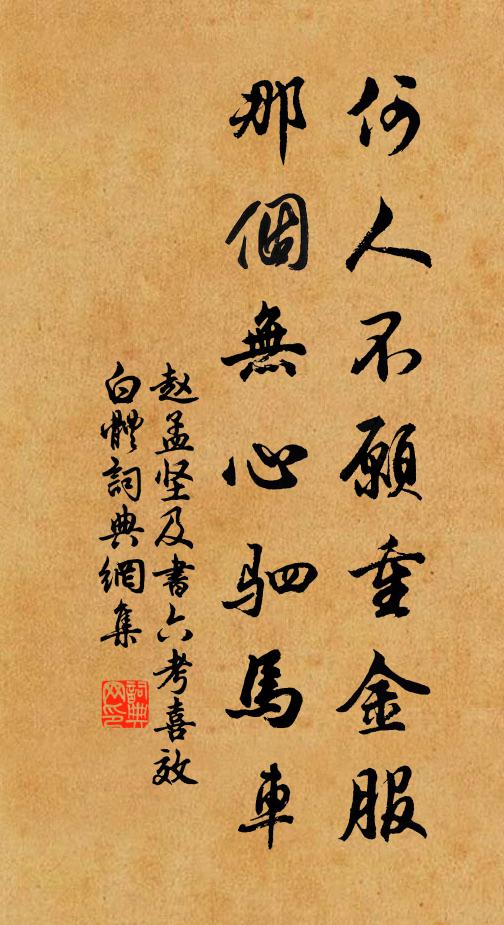 何人不願重金服
那個無心駟馬車
赵孟坚及書六考喜效
白體詞典網集
詞典网印